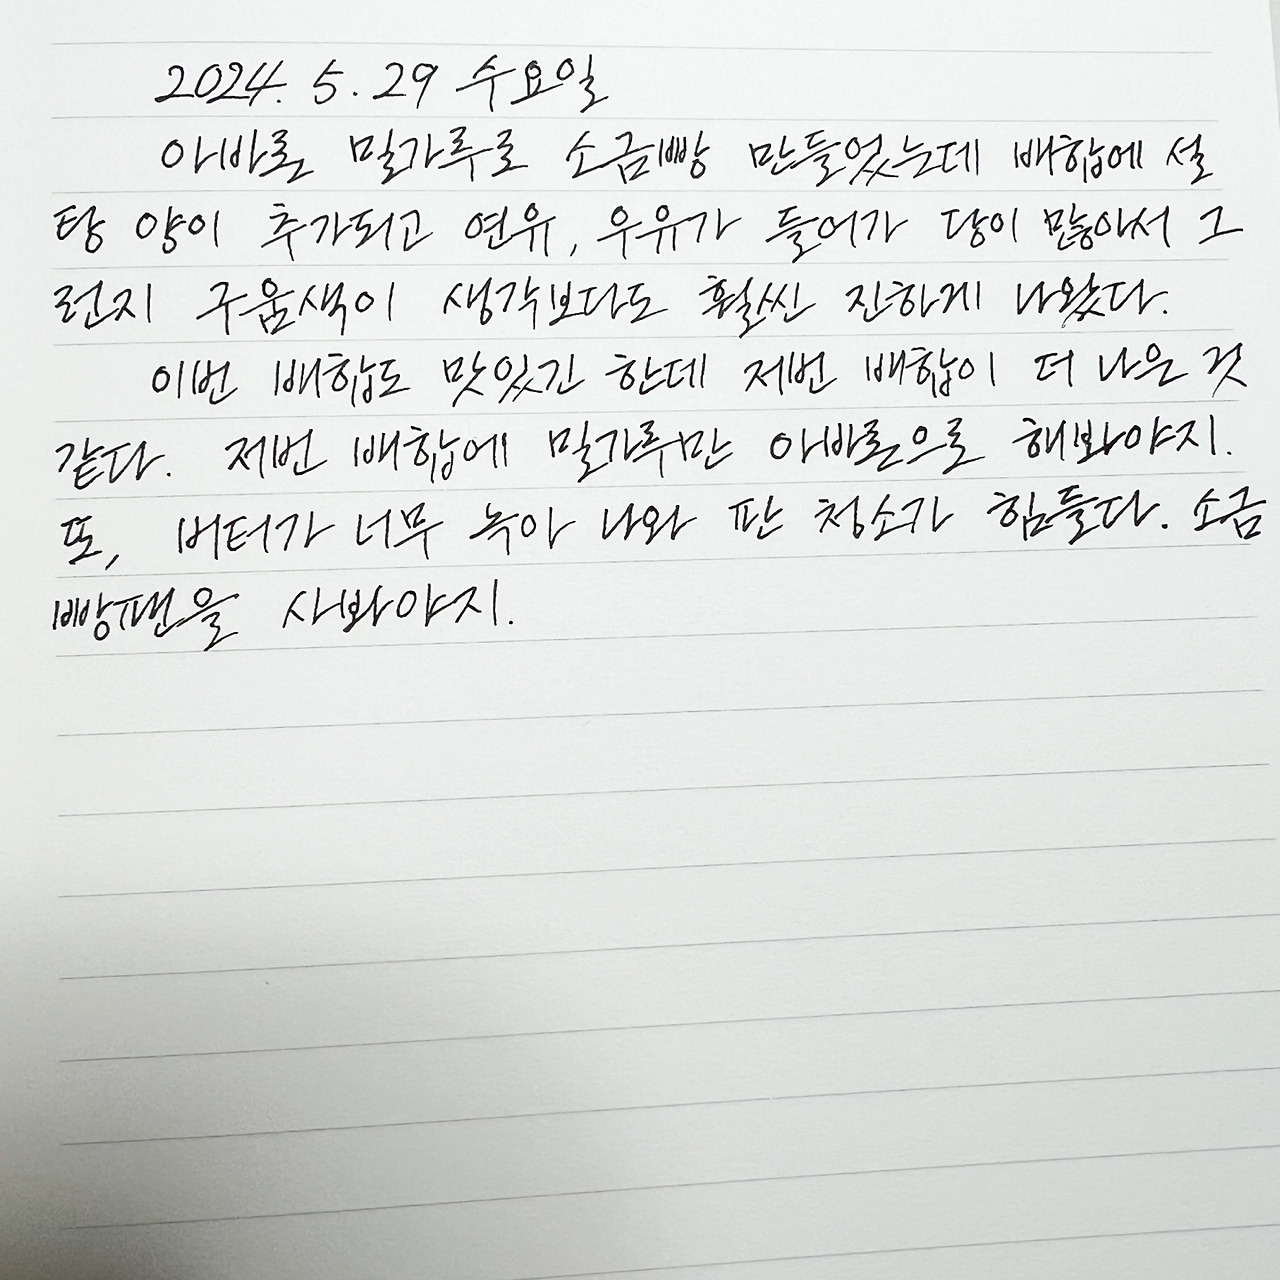 2024. 5. 29 수요일
아바론 밀가루로 소금빵 만들었는데 배합에 설
탕 양이 추가되고 연유, 우유가 들어가 당이 많아서 그
런지 구움색이 생각보다도 훨씬 진하게 나왔다.
이번 배합도 맛있긴 한데 저번 배합이 더 나은 것
같다. 저번 배합에 밀가루만 아바론으로 해봐야지.
또, 버터가 너무 녹아 나와 판 청소가 힘들다. 소금
빵팬을 사봐야지.